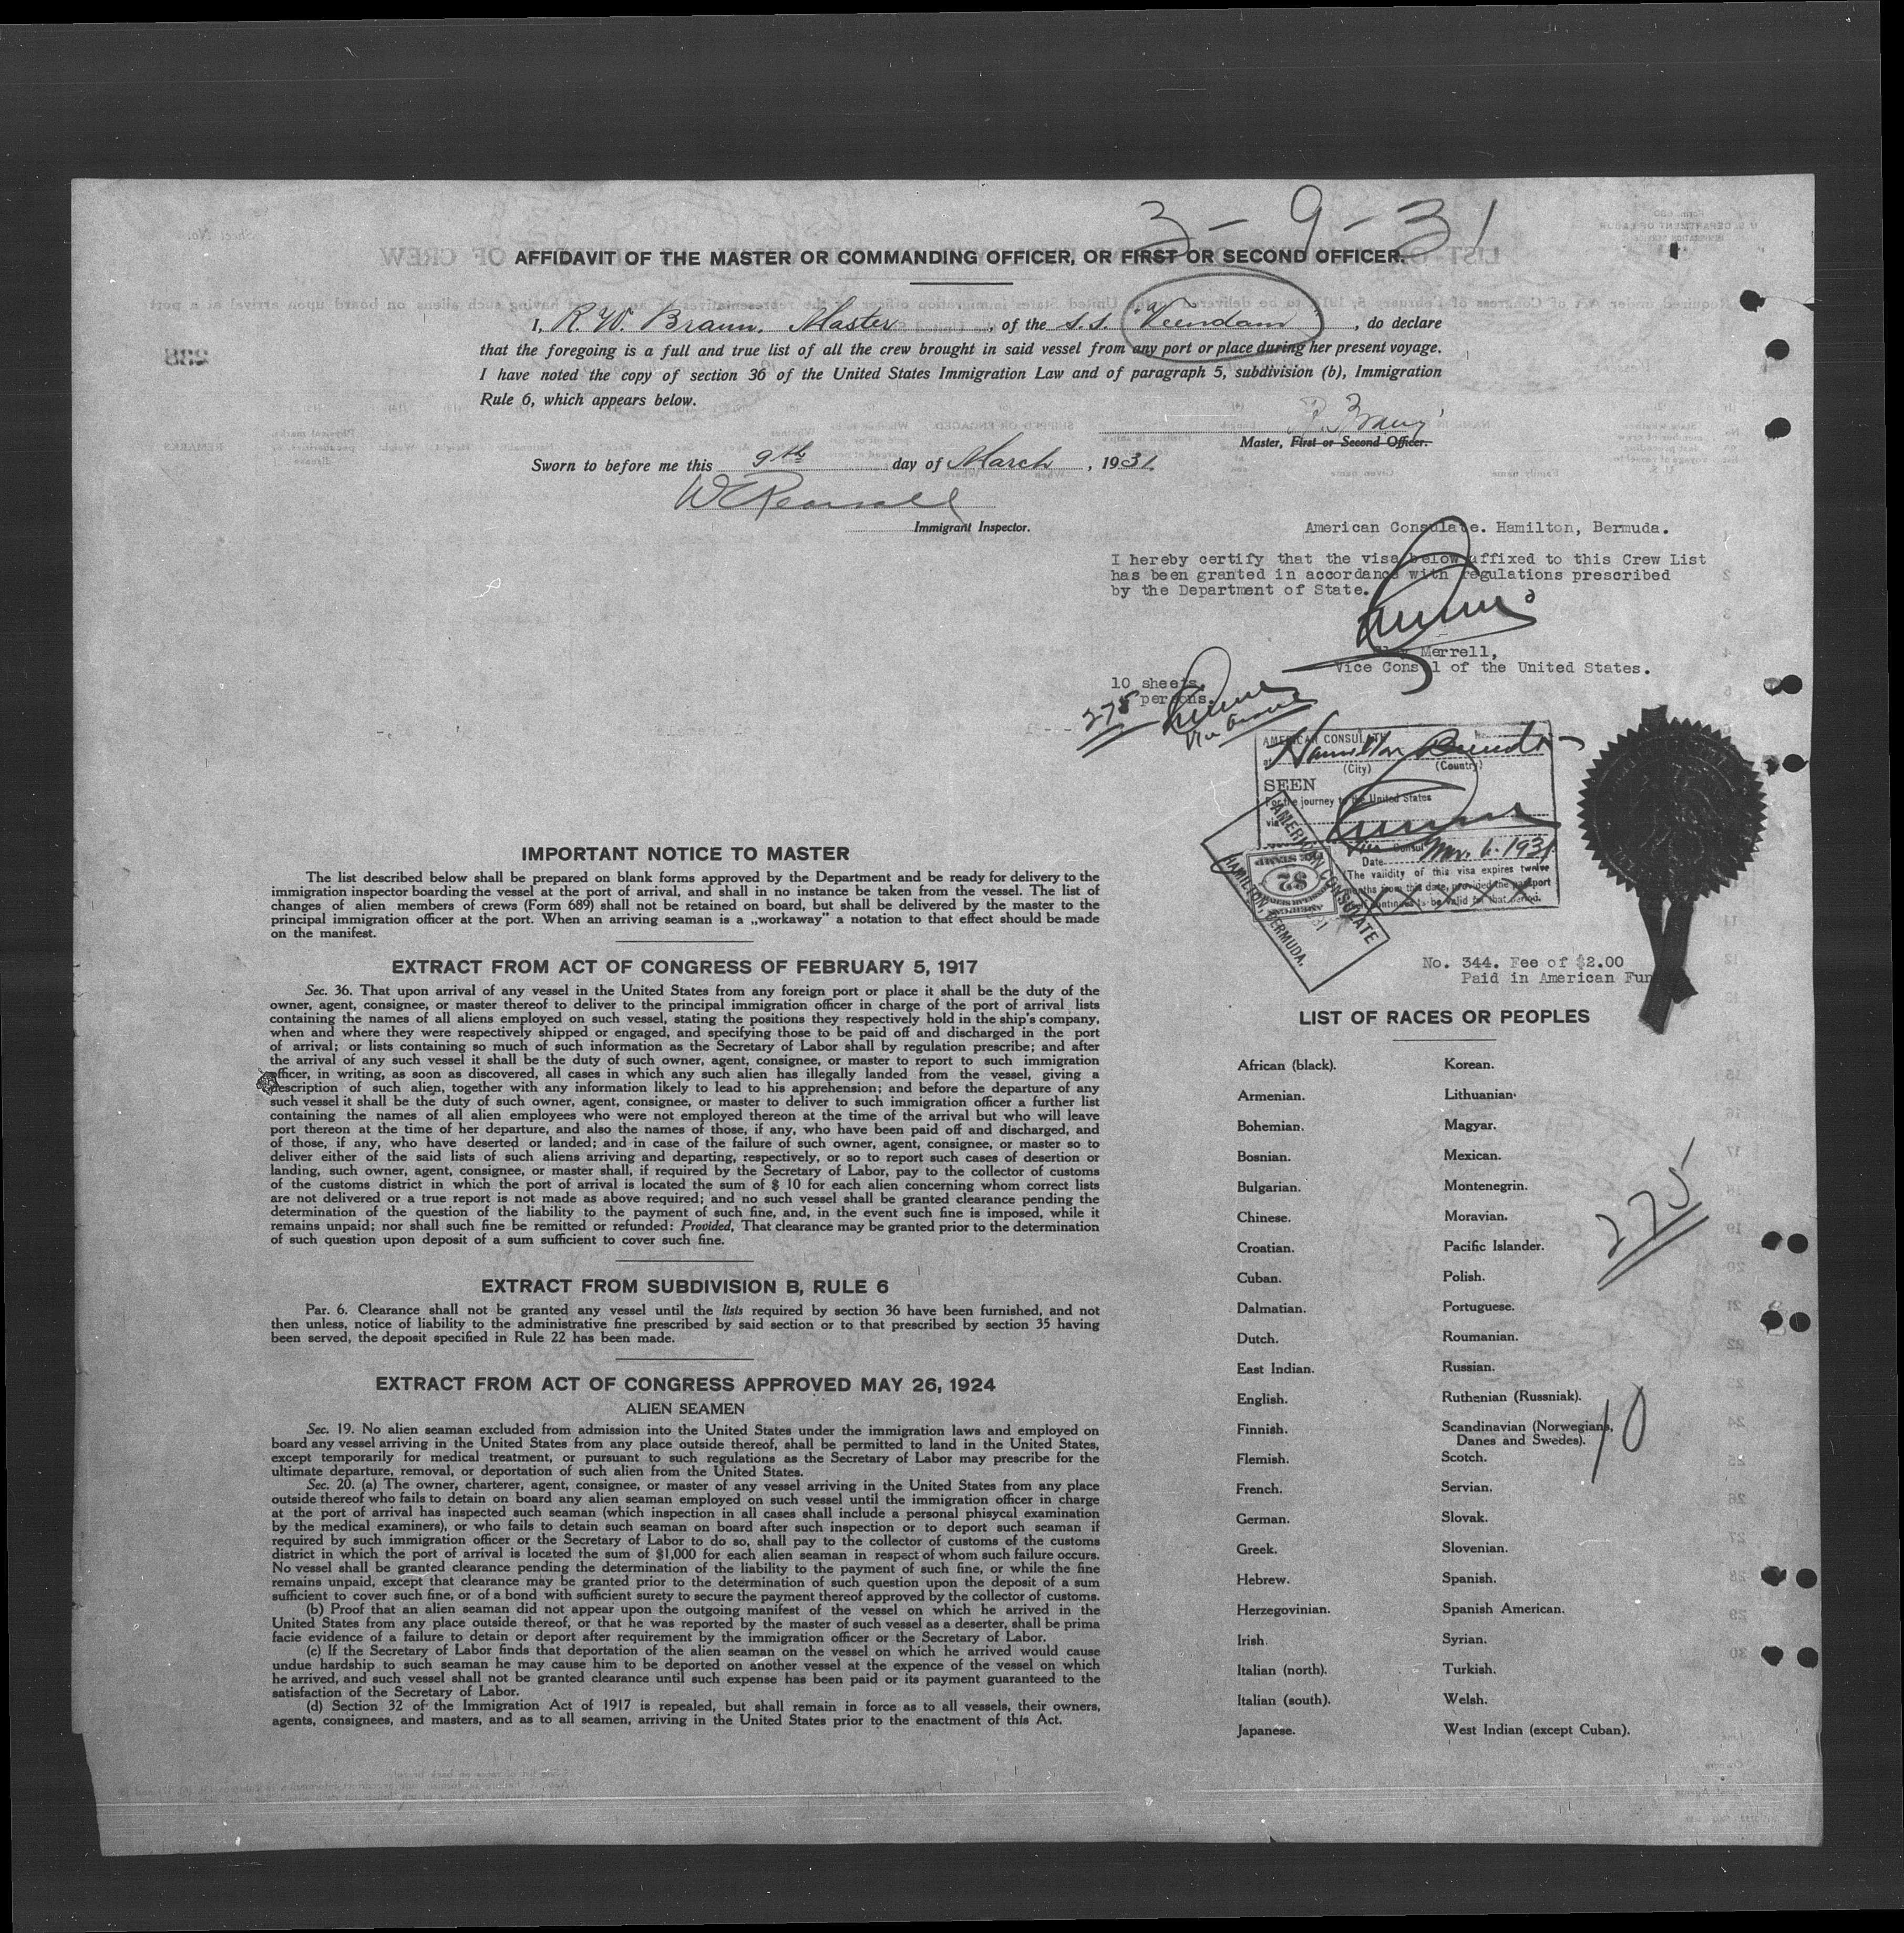 3-9-31
AFFIDAVIT OF THE MASTER OR COMMANDING OFFICER, OR FIRST OR SECOND OFFICER.
I, R. W. Braun, Master, of the s.s. "Veendam", do declare
that the foregoing is a full and true list of all the crew brought in said vessel from any port or place during her present voyage.
I have noted the copy of section 36 of the United States Immigration Law and of paragraph 5, subdivision (b), Immigration
Rule 6, which appears below.
Master, First or Second Officer.
Sworn to before me this 9th day of March, 1931.
Immigrant Inspector.
American Consulate. Hamilton, Bermuda.
I hereby certify that the visa below affixed to this Crew List
has been granted in accordance with regulations prescribed
by the Department of State.
Merrell,
Vice Consul of the United States.
10 sheets.
275 persons.
AMERICAN CONSULATE
at Hamilton Bermuda
(City) (Country)
SEEN
For the journey to the United States
via
Vice Consul
Date Mar. 6. 1931
The validity of this visa expires twelve
months from this date, provided the passport
continues to be valid for that period.
$2
AMERICAN CONSULATE
HAMILTON BERMUDA.
No. 344. Fee of $2.00
Paid in American Fun
IMPORTANT NOTICE TO MASTER
The list described below shall be prepared on blank forms approved by the Department and be ready for delivery to the
immigration inspector boarding the vessel at the port of arrival, and shall in no instance be taken from the vessel. The list of
changes of alien members of crews (Form 689) shall not be retained on board, but shall be delivered by the master to the
principal immigration officer at the port. When an arriving seaman is a „workaway" a notation to that effect should be made
on the manifest.
EXTRACT FROM ACT OF CONGRESS OF FEBRUARY 5, 1917
Sec. 36. That upon arrival of any vessel in the United States from any foreign port or place it shall be the duty of the
owner, agent, consignee, or master thereof to deliver to the principal immigration officer in charge of the port of arrival lists
containing the names of all aliens employed on such vessel, stating the positions they respectively hold in the ship's company,
when and where they were respectively shipped or engaged, and specifying those to be paid off and discharged in the port
of arrival; or lists containing so much of such information as the Secretary of Labor shall by regulation prescribe; and after
the arrival of any such vessel it shall be the duty of such owner, agent, consignee, or master to report to such immigration
officer, in writing, as soon as discovered, all cases in which any such alien has illegally landed from the vessel, giving a
description of such alien, together with any information likely to lead to his apprehension; and before the departure of any
such vessel it shall be the duty of such owner, agent, consignee, or master to deliver to such immigration officer a further list
containing the names of all alien employees who were not employed thereon at the time of the arrival but who will leave
port thereon at the time of her departure, and also the names of those, if any, who have been paid off and discharged, and
of those, if any, who have deserted or landed; and in case of the failure of such owner, agent, consignee, or master so to
deliver either of the said lists of such aliens arriving and departing, respectively, or so to report such cases of desertion or
landing, such owner, agent, consignee, or master shall, if required by the Secretary of Labor, pay to the collector of customs
of the customs district in which the port of arrival is located the sum of $ 10 for each alien concerning whom correct lists
are not delivered or a true report is not made as above required; and no such vessel shall be granted clearance pending the
determination of the question of the liability to the payment of such fine, and, in the event such fine is imposed, while it
remains unpaid; nor shall such fine be remitted or refunded: Provided, That clearance may be granted prior to the determination
of such question upon deposit of a sum sufficient to cover such fine.
EXTRACT FROM SUBDIVISION B, RULE 6
Par. 6. Clearance shall not be granted any vessel until the lists required by section 36 have been furnished, and not
then unless, notice of liability to the administrative fine prescribed by said section or to that prescribed by section 35 having
been served, the deposit specified in Rule 22 has been made.
EXTRACT FROM ACT OF CONGRESS APPROVED MAY 26, 1924
ALIEN SEAMEN
Sec. 19. No alien seaman excluded from admission into the United States under the immigration laws and employed on
board any vessel arriving in the United States from any place outside thereof, shall be permitted to land in the United States,
except temporarily for medical treatment, or pursuant to such regulations as the Secretary of Labor may prescribe for the
ultimate departure, removal, or deportation of such alien from the United States.
Sec. 20. (a) The owner, charterer, agent, consignee, or master of any vessel arriving in the United States from any place
outside thereof who fails to detain on board any alien seaman employed on such vessel until the immigration officer in charge
at the port of arrival has inspected such seaman (which inspection in all cases shall include a personal phisycal examination
by the medical examiners), or who fails to detain such seaman on board after such inspection or to deport such seaman if
required by such immigration officer or the Secretary of Labor to do so, shall pay to the collector of customs of the customs
district in which the port of arrival is located the sum of $1,000 for each alien seaman in respect of whom such failure occurs.
No vessel shall be granted clearance pending the determination of the liability to the payment of such fine, or while the fine
remains unpaid, except that clearance may be granted prior to the determination of such question upon the deposit of a sum
sufficient to cover such fine, or of a bond with sufficient surety to secure the payment thereof approved by the collector of customs.
(b) Proof that an alien seaman did not appear upon the outgoing manifest of the vessel on which he arrived in the
United States from any place outside thereof, or that he was reported by the master of such vessel as a deserter, shall be prima
facie evidence of a failure to detain or deport after requirement by the immigration officer or the Secretary of Labor.
(c) If the Secretary of Labor finds that deportation of the alien seaman on the vessel on which he arrived would cause
undue hardship to such seaman he may cause him to be deported on another vessel at the expence of the vessel on which
he arrived, and such vessel shall not be granted clearance until such expense has been paid or its payment guaranteed to the
satisfaction of the Secretary of Labor.
(d) Section 32 of the Immigration Act of 1917 is repealed, but shall remain in force as to all vessels, their owners,
agents, consignees, and masters, and as to all seamen, arriving in the United States prior to the enactment of this Act.
LIST OF RACES OR PEOPLES
African (black). Korean.
Armenian. Lithuanian.
Bohemian. Magyar.
Bosnian. Mexican.
Bulgarian. Montenegrin.
Chinese. Moravian.
Croatian. Pacific Islander.
Cuban. Polish.
Dalmatian. Portuguese.
Dutch. Roumanian.
East Indian. Russian.
English. Ruthenian (Russniak).
Finnish. Scandinavian (Norwegians,
Danes and Swedes).
Flemish. Scotch.
French. Servian.
German. Slovak.
Greek. Slovenian.
Hebrew. Spanish.
Herzegovinian. Spanish American.
Irish. Syrian.
Italian (north). Turkish.
Italian (south). Welsh.
Japanese. West Indian (except Cuban).
275
10